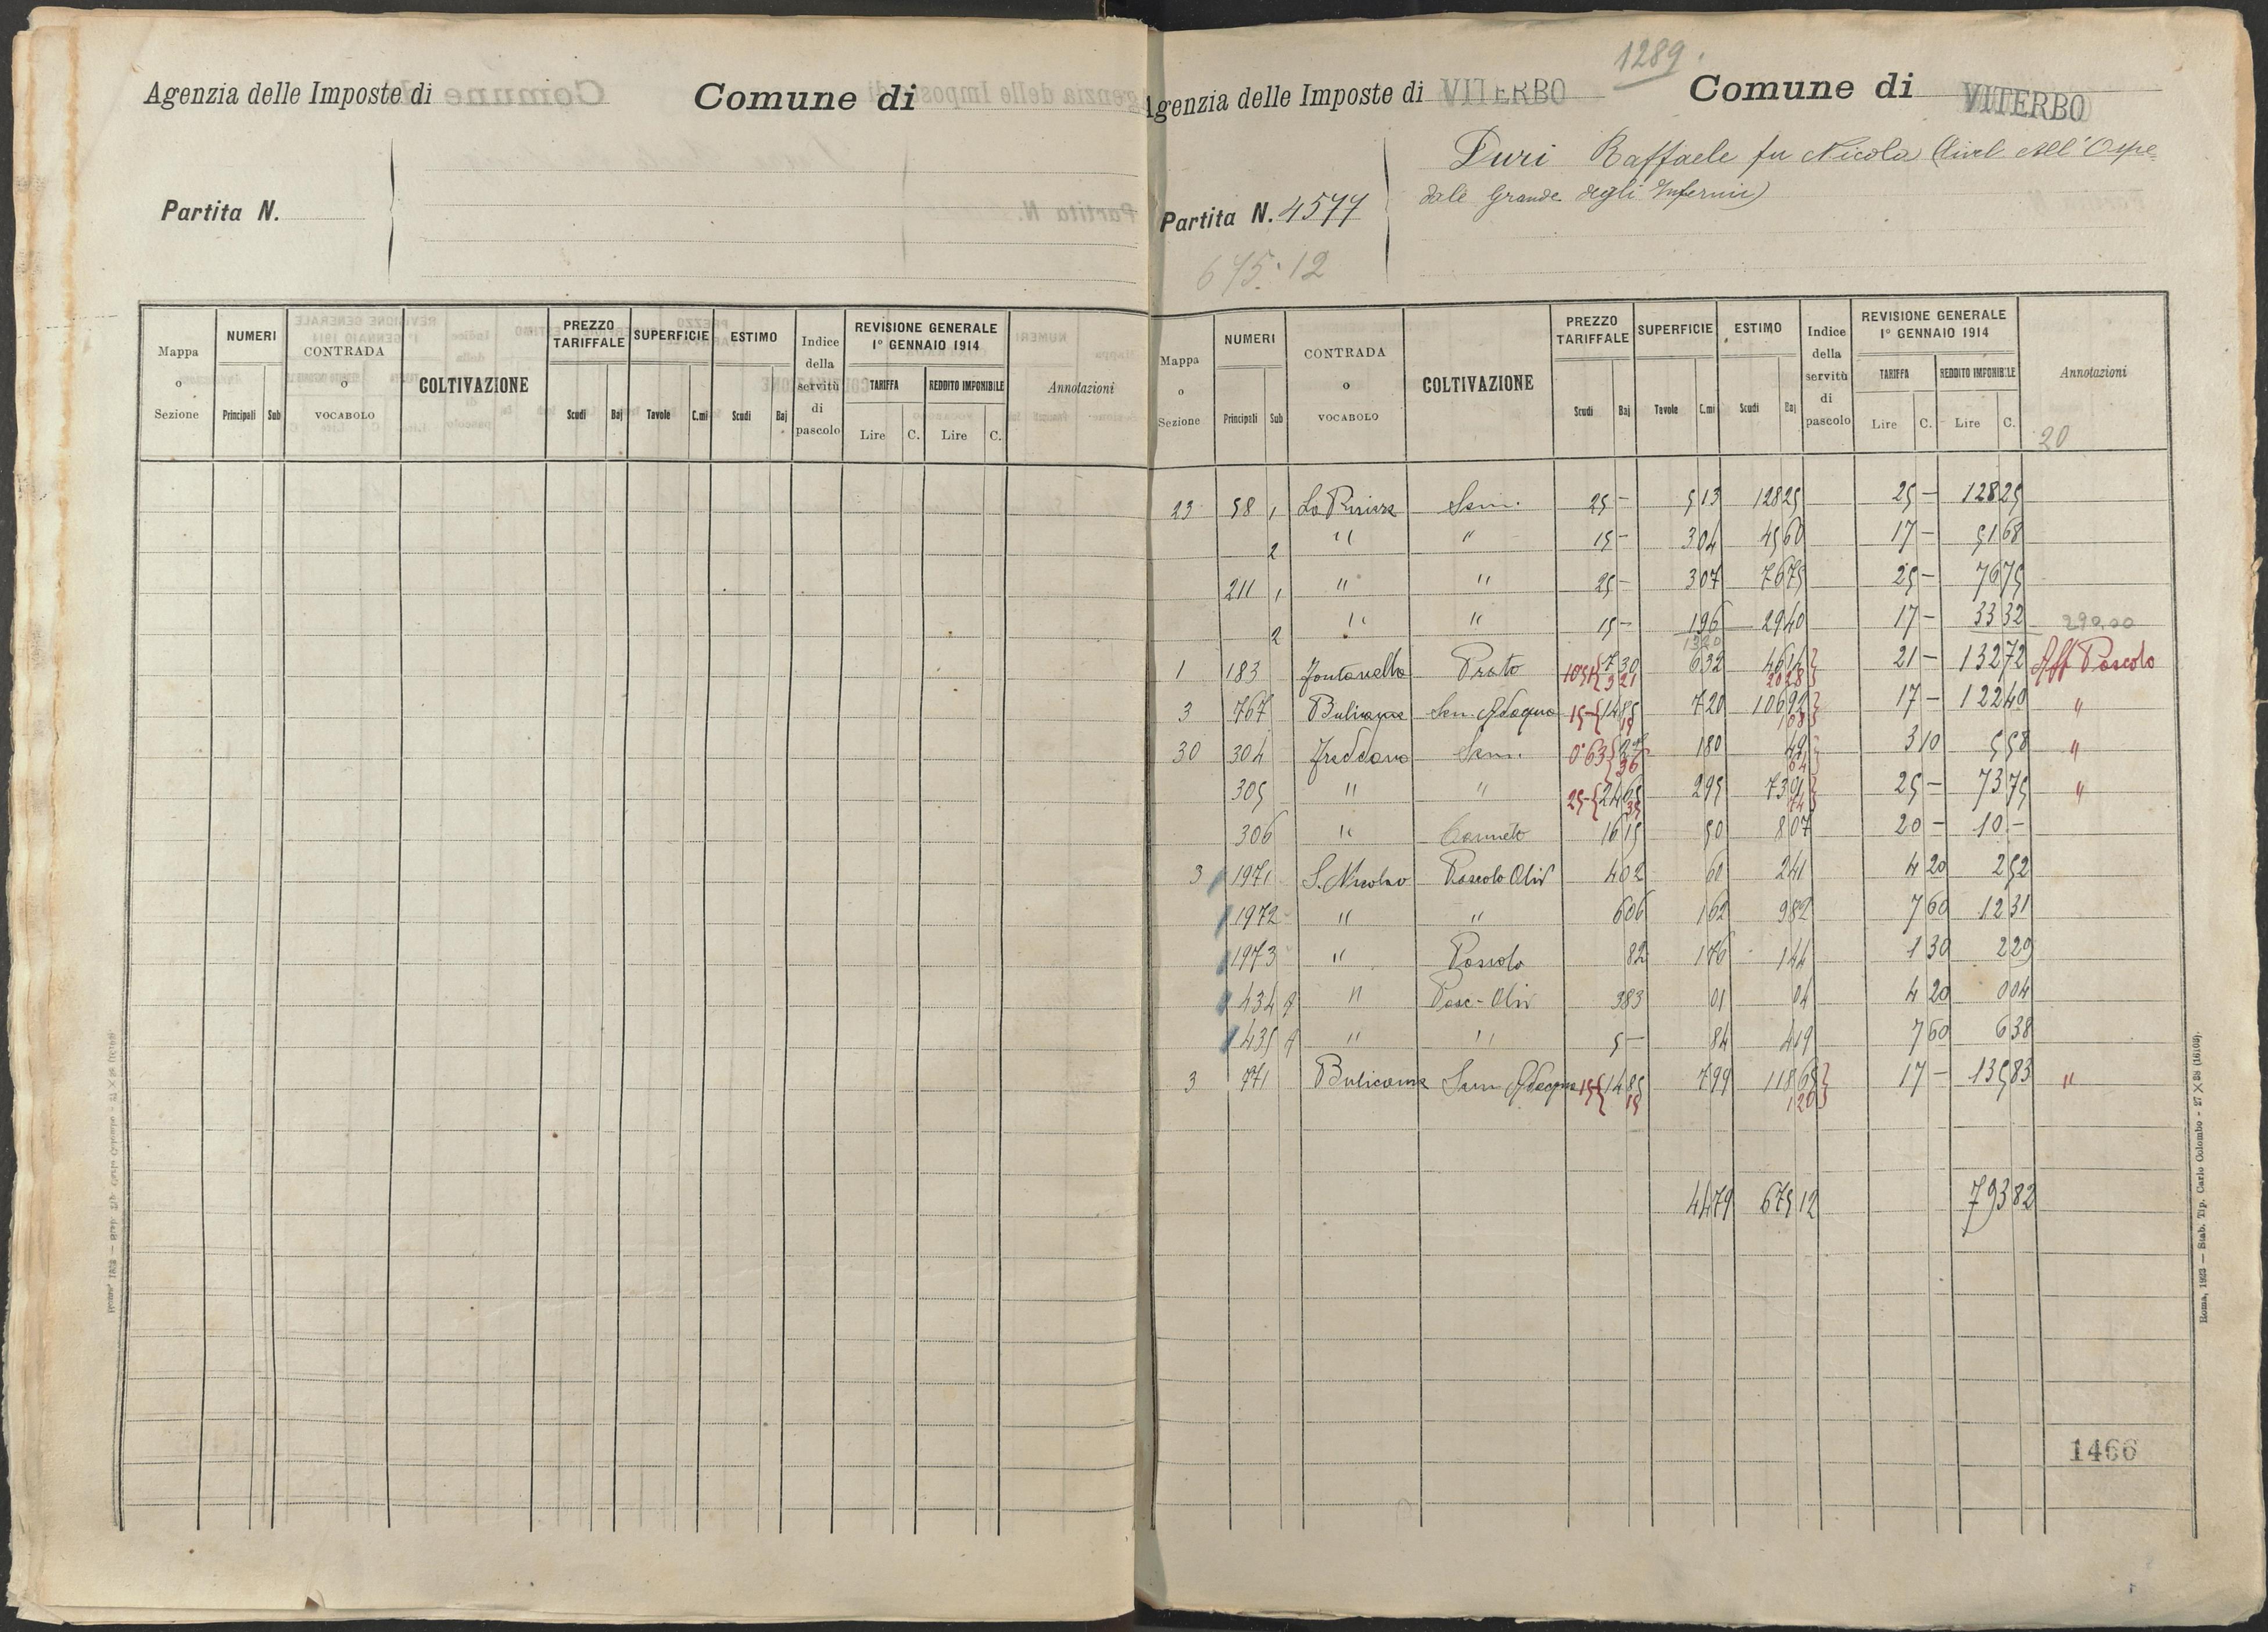 Agenzia delle Imposte di
Comune di
Partita N.
Mappa o Sezione
NUMERI
Principali Sub
CONTRADA o VOCABOLO
COLTIVAZIONE
PREZZO TARIFFALE
Scudi Baj
SUPERFICIE
Tavole C.mi
ESTIMO
Scudi Baj
Indice della servitù di pascolo
REVISIONE GENERALE
1° GENNAIO 1914
TARIFFA REDDITO IMPONIBILE
Lire C. Lire C.
Annotazioni
1289.
Agenzia delle Imposte di VITERBO Comune di VITERBO
Duri Raffaele fu Nicola (livel all'Ospe=
dale Grande degli Infermi)
Partita N. 4577
675.12
Mappa o Sezione
NUMERI
Principali Sub
CONTRADA o VOCABOLO
COLTIVAZIONE
PREZZO TARIFFALE
Scudi Baj
SUPERFICIE
Tavole C.mi
ESTIMO
Scudi Baj
Indice della servitù di pascolo
REVISIONE GENERALE
1° GENNAIO 1914
TARIFFA REDDITO IMPONIBILE
Lire C. Lire C.
Annotazioni
20
23 58 1 Sem. 25 – 5 13 128 25 25 – 128 25
2 " " 15 – 3 04 45 60 17 – 51 68
211 1 " " 25 – 3 07 76 75 25 – 76 75
2 " " 15 – 1 96 29 40 17 – 33 32 290,00
13 20
1 183 Fontanella Prato 10 51 { 7 30 6 32 46 14 } 21 – 132 72 Aff Pascolo
3 21 20 28
3 767 Bulicame Sem Adacqua 15 – { 14 85 7 20 106 92 } 17 – 122 40 "
15 1 08
30 304 Freddano Sem. 0 63 { 1 80 49 } 3 10 5 58 "
36 64
305 " " 25 – { 24 65 2 95 73 91 } 25 – 73 75 "
35 74
306 " Canneto 16 15 50 8 07 20 – 10 –
3 1971 S. Nicolao Pascolo Oliv 4 02 60 2 41 4 20 2 52
1972 " " 6 06 1 62 9 82 7 60 12 31
1973 " Pascolo 82 1 76 1 44 1 30 2 29
434 " Pasc-Oliv 3 83 01 04 4 20 0 04
435 " " 5 – 84 4 19 7 60 6 38
3 771 Bulicame Sem Adacqua 15 – { 14 85 7 99 118 65 } 17 – 135 83 "
15 1 20
44 79 675 12 793 82
1466
Roma, 1923 — Stab. Tip. Carlo Colombo - 27 X 38 (16103).